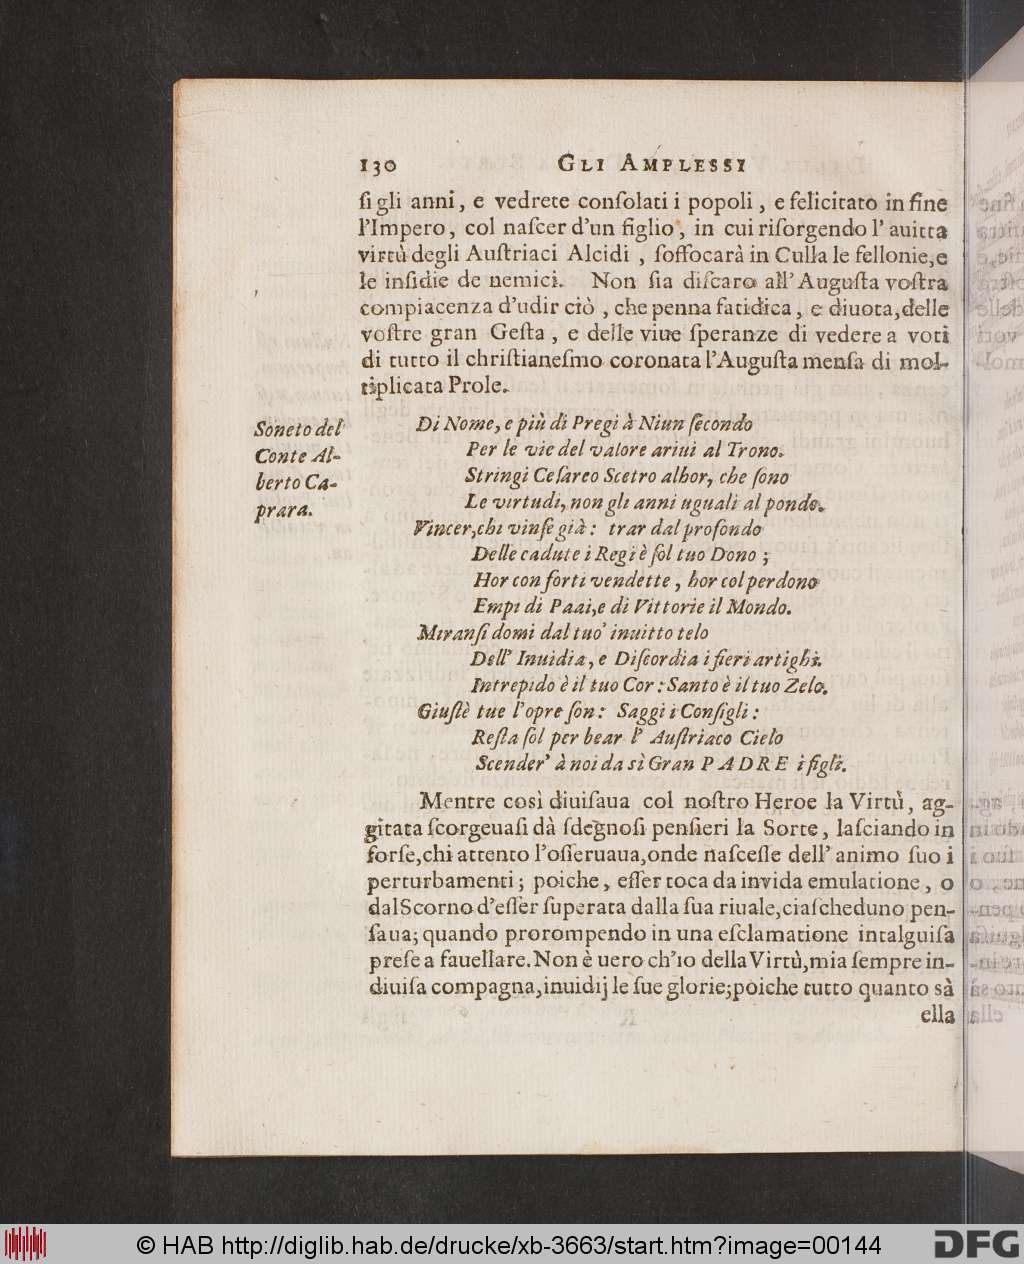 130 GLI AMPLESSI
ſi gli anni, e vedrete conſolati i popoli, e felicitato in fine
l'Impero, col naſcer d'un figlio, in cui riſorgendo l'auitta
virtù degli Auſtriaci Alcidi, ſoffocarà in Culla le fellonie, e
le inſidie de nemici. Non ſia diſcaro all'Auguſta voſtra
compiacenza d'udir ciò, che penna fatidica, e diuota, delle
voſtre gran Geſta, e delle viue ſperanze di vedere a voti
di tutto il chriſtianeſmo coronata l'Auguſta menſa di mol-
tiplicata Prole.
Soneto del
Conte Al-
berto Ca-
prara.
Di Nome, e più di Pregi à Niun ſecondo
Per le vie del valore ariui al Trono.
Stringi Ceſareo Scetro alhor, che ſono
Le virtudi, non gli anni uguali al pondo.
Vincer, chi vinſe già: trar dal profondo
Delle cadute i Regi è ſol tuo Dono;
Hor con forti vendette, hor col perdono
Empi di Paai, e di Vittorie il Mondo.
Miranſi domi dal tuo inuitto telo
Dell'Inuidia, e Diſcordia i fieri artighi.
Intrepido è il tuo Cor: Santo è il tuo Zelo.
Giuſtè tue l'opre ſon: Saggi i Conſigli:
Reſta ſol per bear l'Auſtriaco Cielo
Scender' à noi da sì Gran PADRE i figli.
Mentre così diuiſaua col noſtro Heroe la Virtù, ag-
gitata ſcorgeuaſi dà ſdegnoſi penſieri la Sorte, laſciando in
forſe, chi attento l'oſſeruaua, onde naſceſſe dell'animo ſuo i
perturbamenti; poiche, eſſer toca da invida emulatione, o
dal Scorno d'eſſer ſuperata dalla ſua riuale, ciaſcheduno pen-
ſaua; quando prorompendo in una eſclamatione intalguiſa
preſe a fauellare. Non è uero ch'io della Virtù, mia ſempre in-
diuiſa compagna, inuidij le ſue glorie; poiche tutto quanto sà
ella
© HAB http://diglib.hab.de/drucke/xb-3663/start.htm?image=00144
DFG